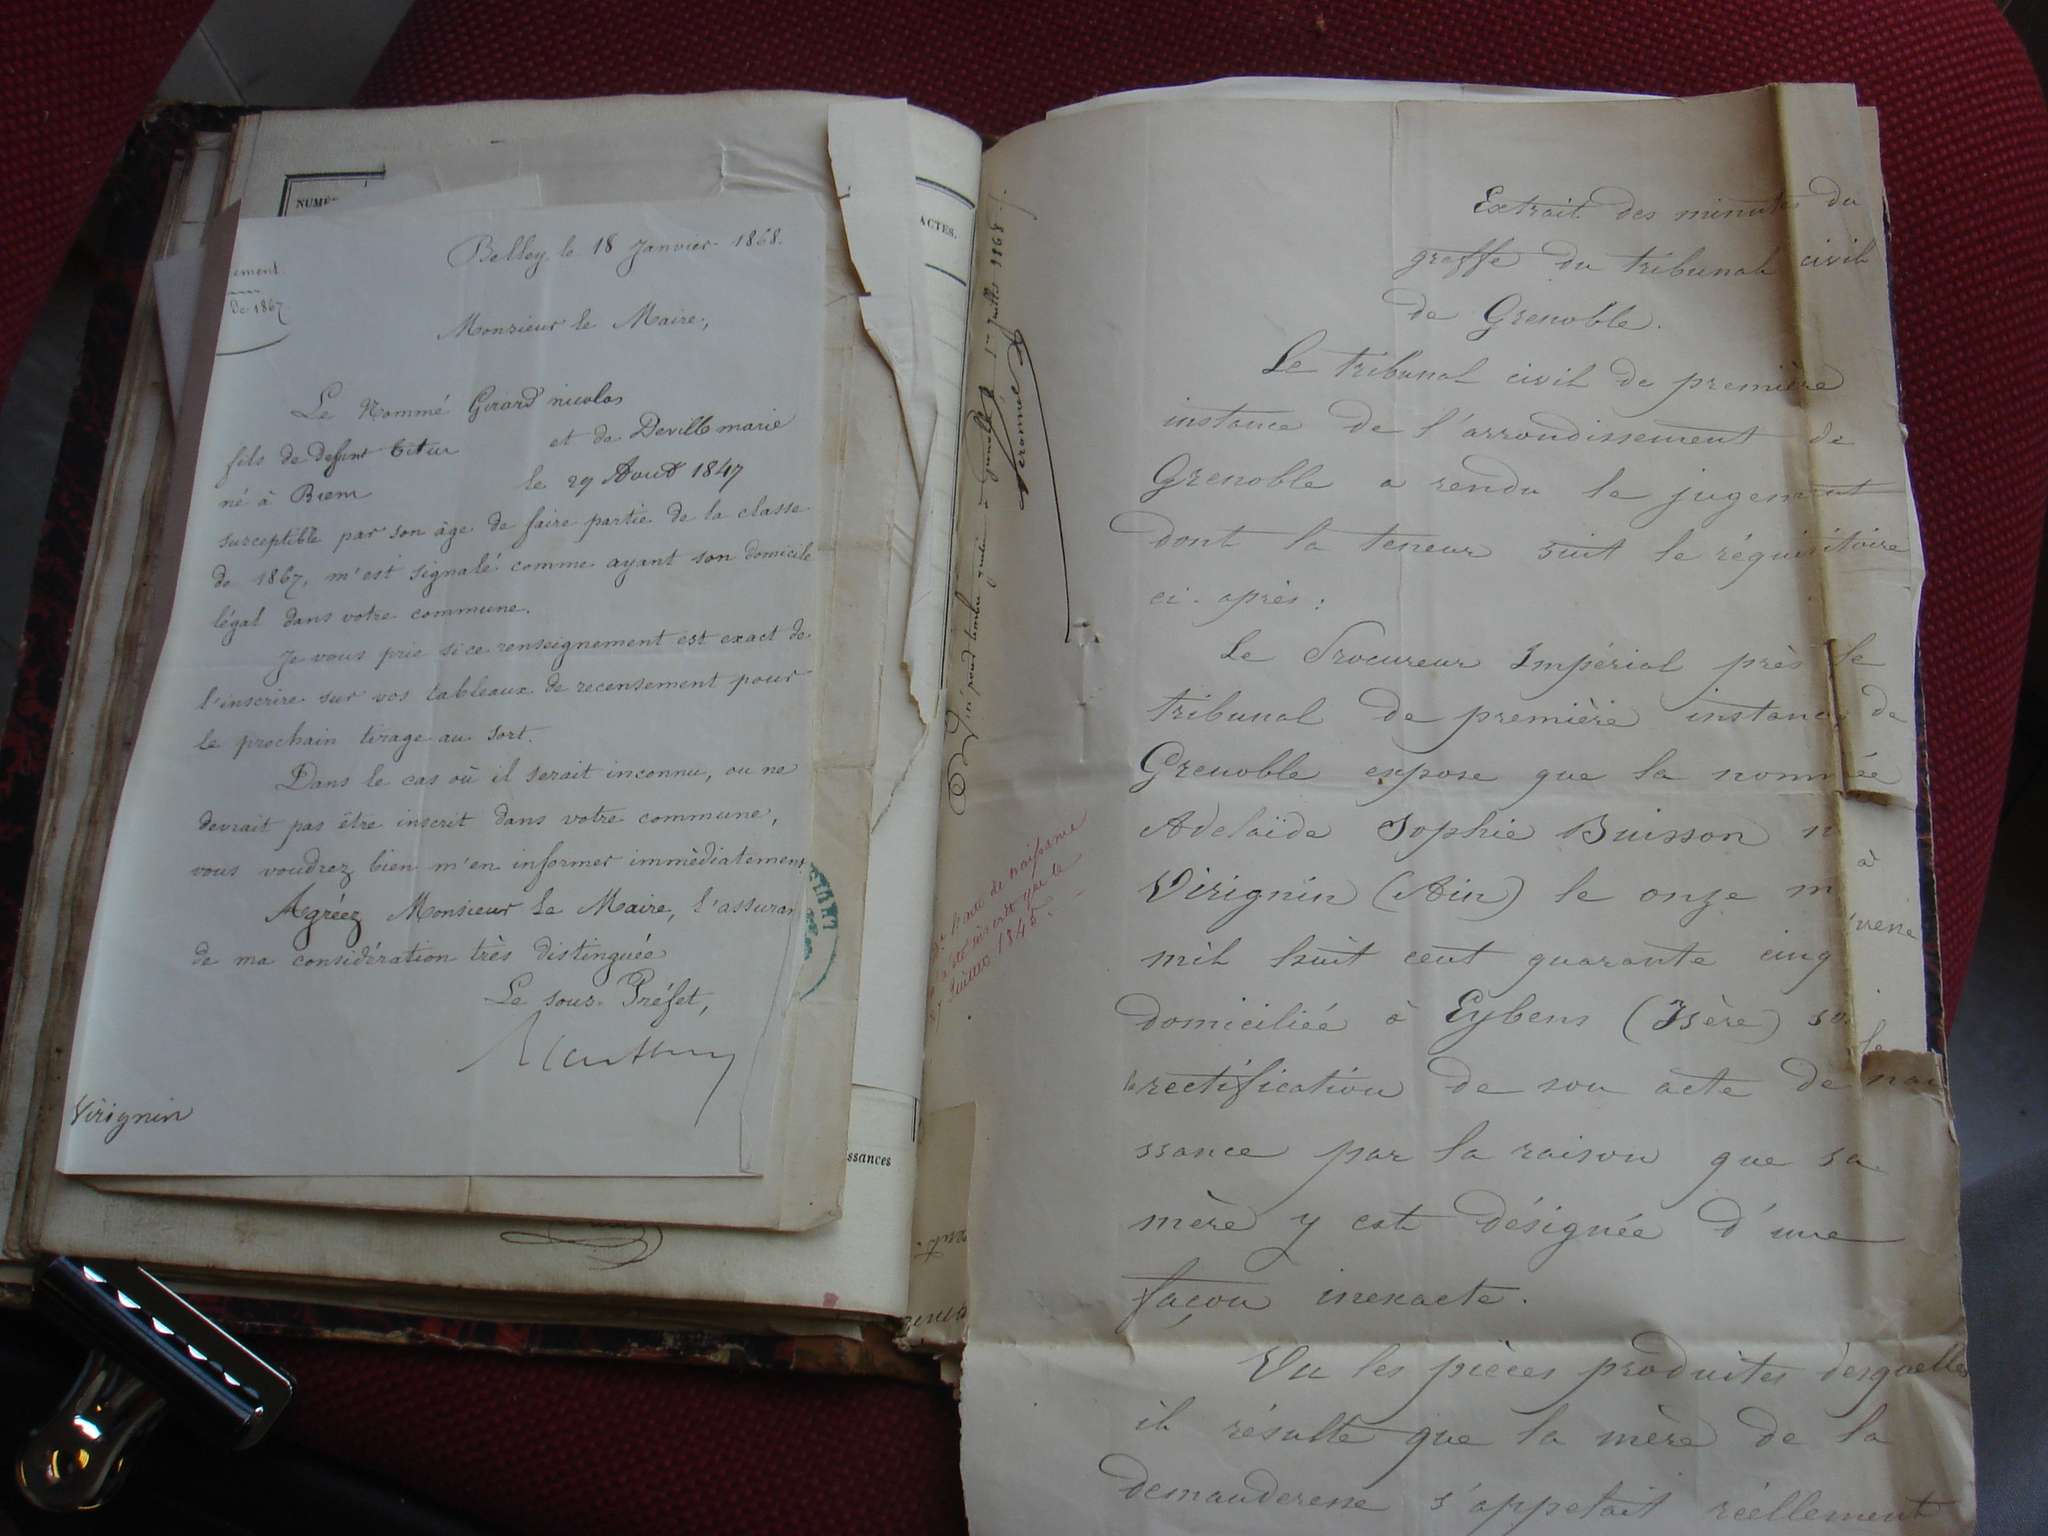 NUMÉ
ACTES.
ement
de 1867
Belley le 18 Janvier 1868.
Monsieur le Maire,
Le Nommé Girard nicolas
fils de defunt et de Deville marie
né à Brens le 29 Aout 1847
susceptible par son âge de faire partie de la classe
de 1867, m'est signalé comme ayant son domicile
légal dans votre commune.
Je vous prie si ce renseignement est exact de
l'inscrire sur vos tableaux de recensement pour
le prochain tirage au sort.
Dans le cas où il serait inconnu, ou ne
devrait pas être inscrit dans votre commune,
vous voudrez bien m'en informer immédiatement
Agréez Monsieur le Maire, l'assuran
de ma considération très distinguée
Le sous-Préfet,
Virignin
ssances
Visé pour timbre à Grenoble le 1er Juillet 1868.
l'acte de naissance
a été inscrit que le
Juillet 1845.
Extrait des minutes du
greffe du tribunal civil
de Grenoble.
Le tribunal civil de première
instance de l'arrondissement de
Grenoble a rendu le jugement
dont la teneur suit le réquisitoire
ci-après :
Le Procureur Impérial près le
tribunal de première instance de
Grenoble expose que la nommée
Adelaïde Sophie Buisson n à
Virignin (Ain) le onze m
mil huit cent quarante cinq
domiciliée à Eybens (Isère) so le
la rectification de son acte de nai
ssance par la raison que sa
mère y est désignée d'une
façon inexacte.
Vu les pièces produites desquelles
il résulte que la mère de la
demanderesse s'appelait réellement